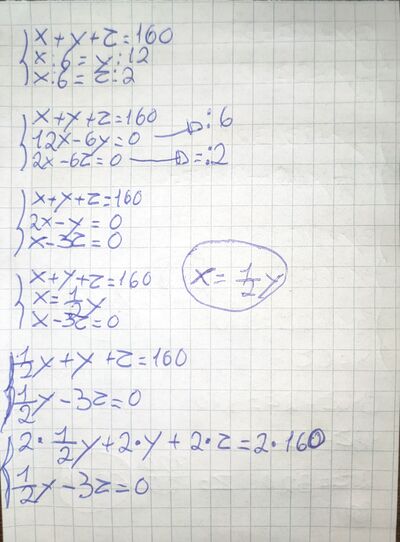 x + y + z = 160
x : 6 = y : 12
x : 6 = z : 2
x + y + z = 160
12x - 6y = 0 → : 6
2x - 6z = 0 → = : 2
x + y + z = 160
2x - y = 0
x - 3z = 0
x + y + z = 160
x = 1/2 y
x - 3z = 0
x = 1/2 y
1/2 y + y + z = 160
1/2 y - 3z = 0
2 · 1/2 y + 2 · y + 2 · z = 2 · 160
1/2 y - 3z = 0